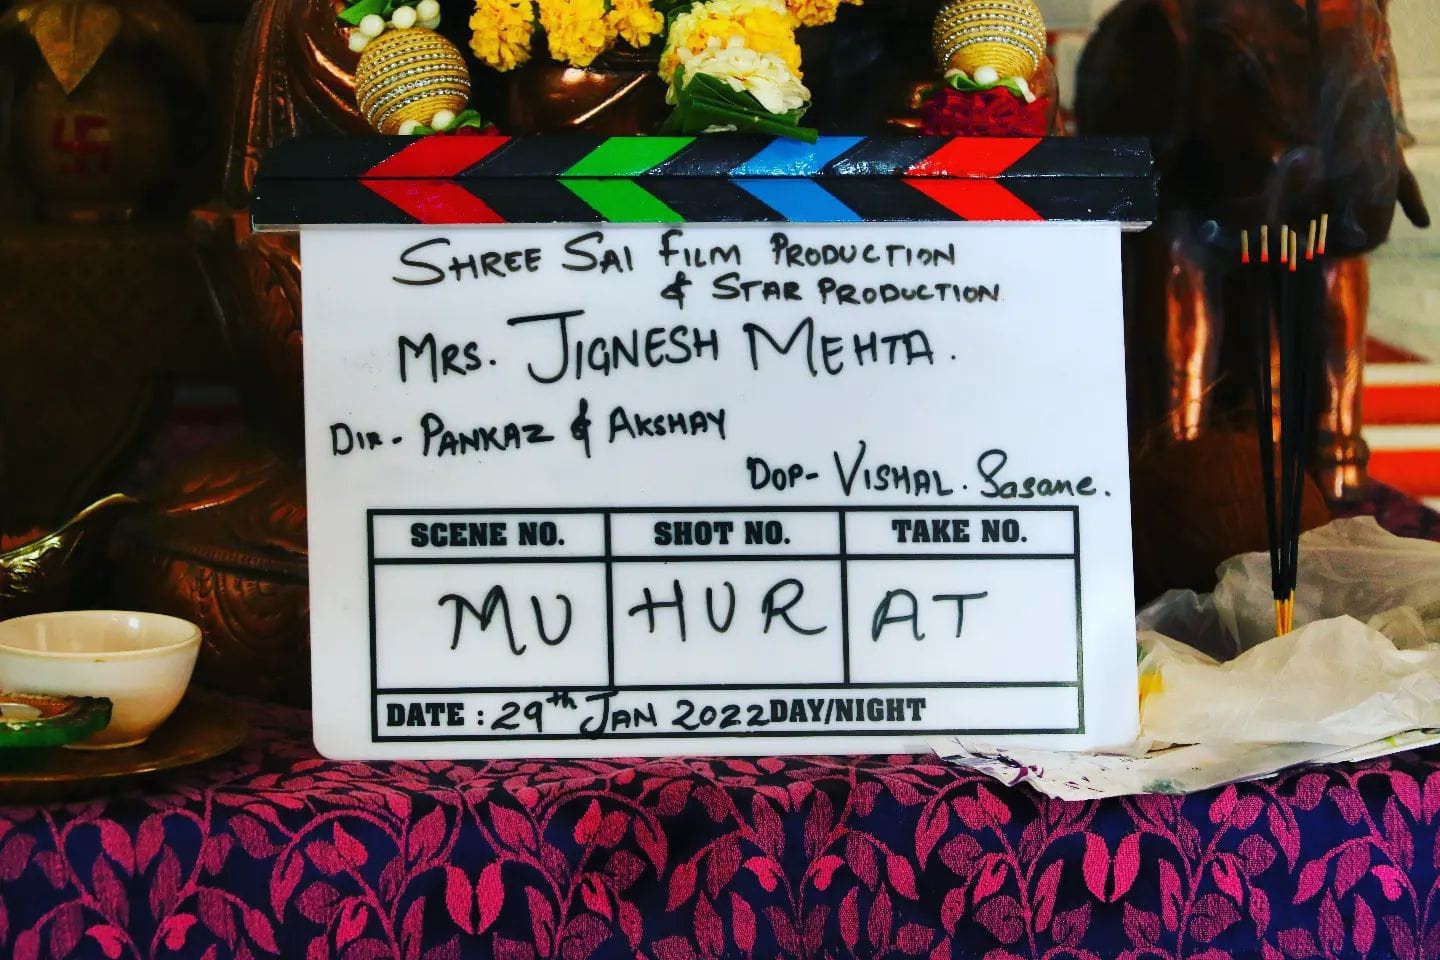 SHREE SAI FILM PRODUCTION
& STAR PRODUCTION
MRS. JIGNESH MEHTA.
DIR- PANKAZ & AKSHAY
DOP- VISHAL. Sasane.
SCENE NO. SHOT NO. TAKE NO.
MU HUR AT
DATE : 29th JAN 2022 DAY/NIGHT